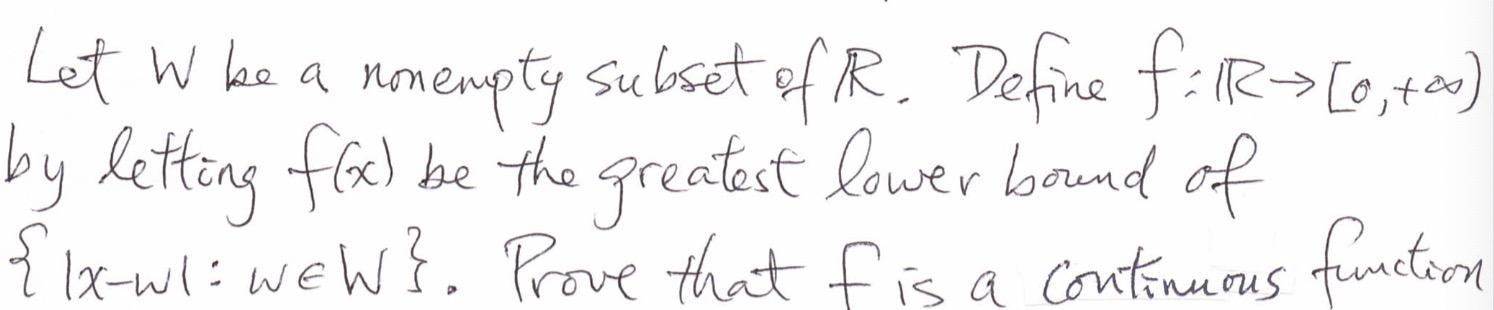 Let W be a nonempty subset of ℝ. Define f: ℝ→[0,+∞)
by letting f(x) be the greatest lower bound of
{|x-w| : w∈W}. Prove that f is a continuous function